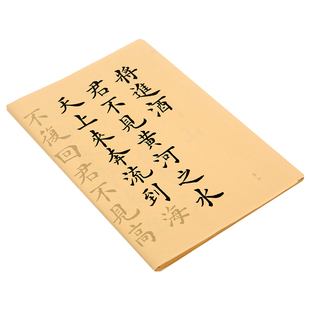 將進酒
君不見黄河之水
天上來奔流到海
不復回君不見高